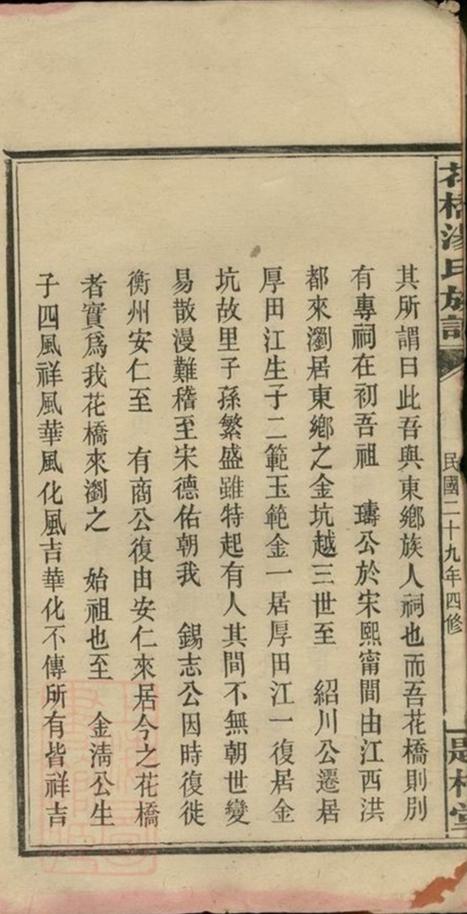 花橋湯氏族譜
民國二十九年四修
是村堂
其所謂曰此吾與東鄉族人祠也而吾花橋則別
有專祠在初吾祖 璹公於宋熙甯間由江西洪
都來瀏居東鄉之金坑越三世至 紹川公遷居
厚田江生子二範玉範金一居厚田江一復居金
坑故里子孫繁盛雖特起有人其間不無朝世變
易散漫難稽至宋德佑朝我 錫志公因時復徙
衡州安仁至 有商公復由安仁來居今之花橋
者實爲我花橋來瀏之 始祖也至 金淸公生
子四風祥風華風化風吉華化不傳所有皆祥吉